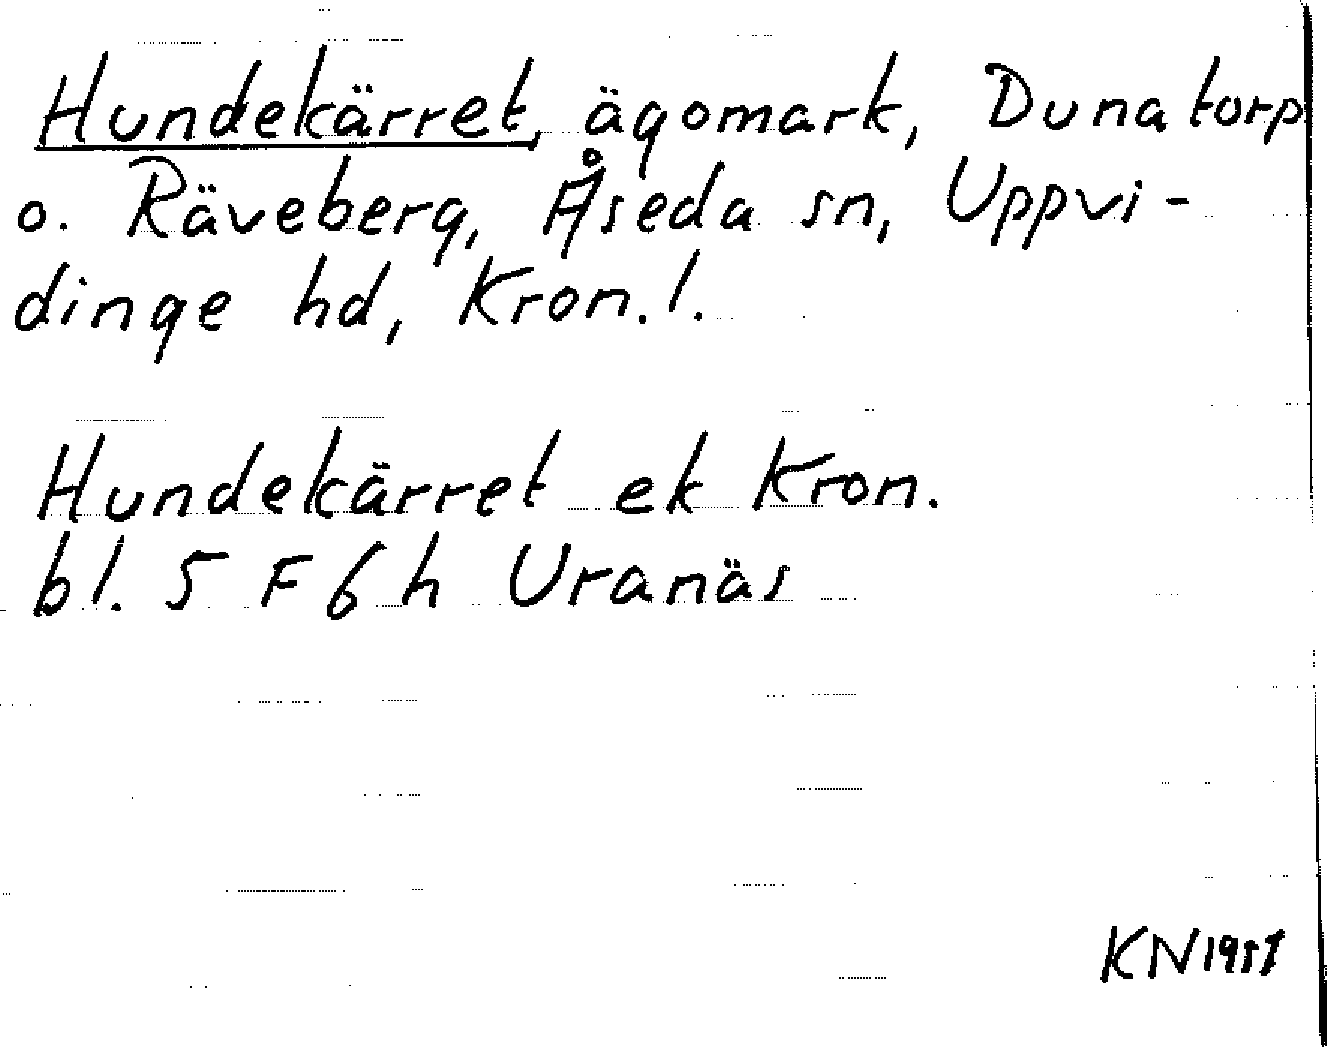 Hundekärret, ägomark, Dunatorp
o. Räveberg, Åseda sn, Uppvi-
dinge hd, Kron. l.
Hundekärret ek Kron.
bl. 5 F 6 h Uranäs
KN 1957